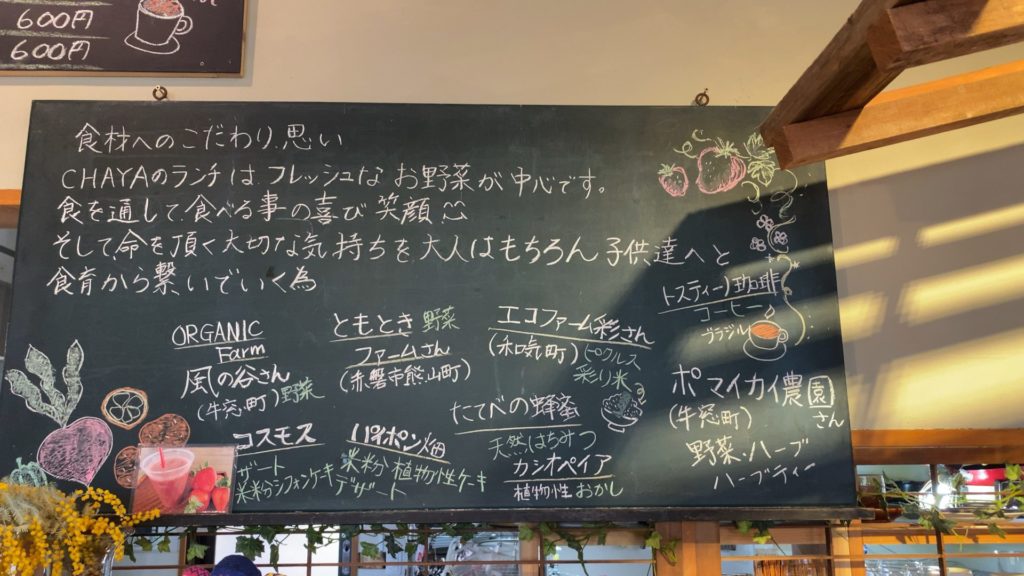 600円
600円
食材へのこだわり、思い
CHAYAのランチはフレッシュなお野菜が中心です。
食を通して食べる事の喜び笑顔
そして命を頂く大切な気持ちを大人はもちろん子供達へと
食育から繋いでいく為
ORGANIC
Farm
風の谷さん
(牛窓町)野菜
ともとき 野菜
ファームさん
(赤磐市能山町)
エコファーム彩さん
(和気町)ピクルス
彩り米
トスティーノ珈琲
コーヒー
ブラジル
コスモス
デザート
米粉シフォンケーキ
パイポン畑
米粉 植物性ケーキ
デザート
たてべの蜂蜜
天然はちみつ
カシオペイア
植物性おかし
ポマイカイ農園さん
(牛窓町)
野菜・ハーブ
ハーブティー